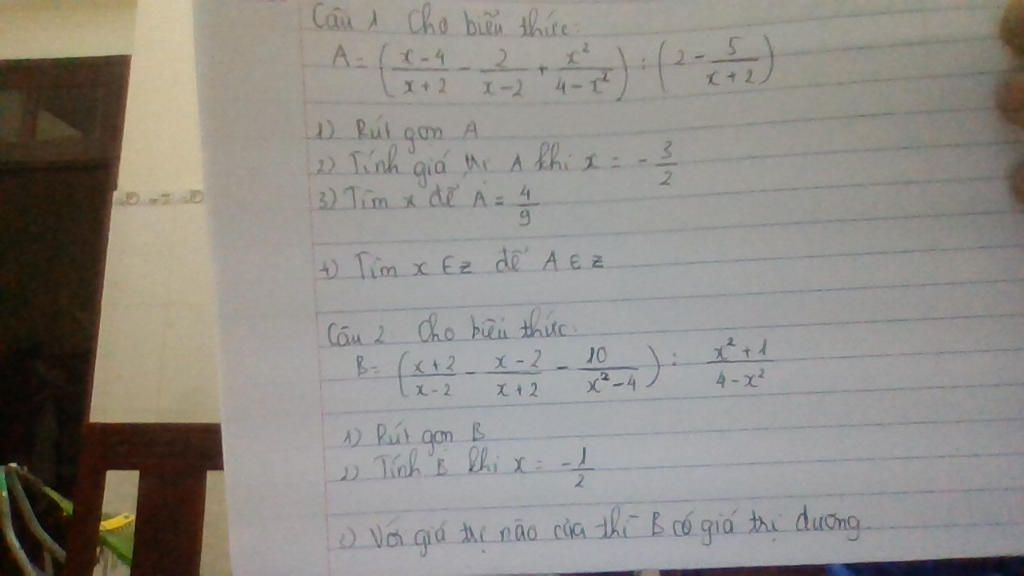 Câu 1 Cho biểu thức:
A = ( (x-4)/(x+2) - 2/(x-2) + x²/(4-x²) ) : ( 2 - 5/(x+2) )
1) Rút gọn A
2) Tính giá trị A khi x = -3/2
3) Tìm x để A = 4/9
4) Tìm x ∈ Z để A ∈ Z
Câu 2. Cho biểu thức:
B = ( (x+2)/(x-2) - (x-2)/(x+2) - 10/(x²-4) ) : (x²+1)/(4-x²)
1) Rút gọn B
2) Tính B khi x = -1/2
3) Với giá trị nào của thì B có giá trị dương.